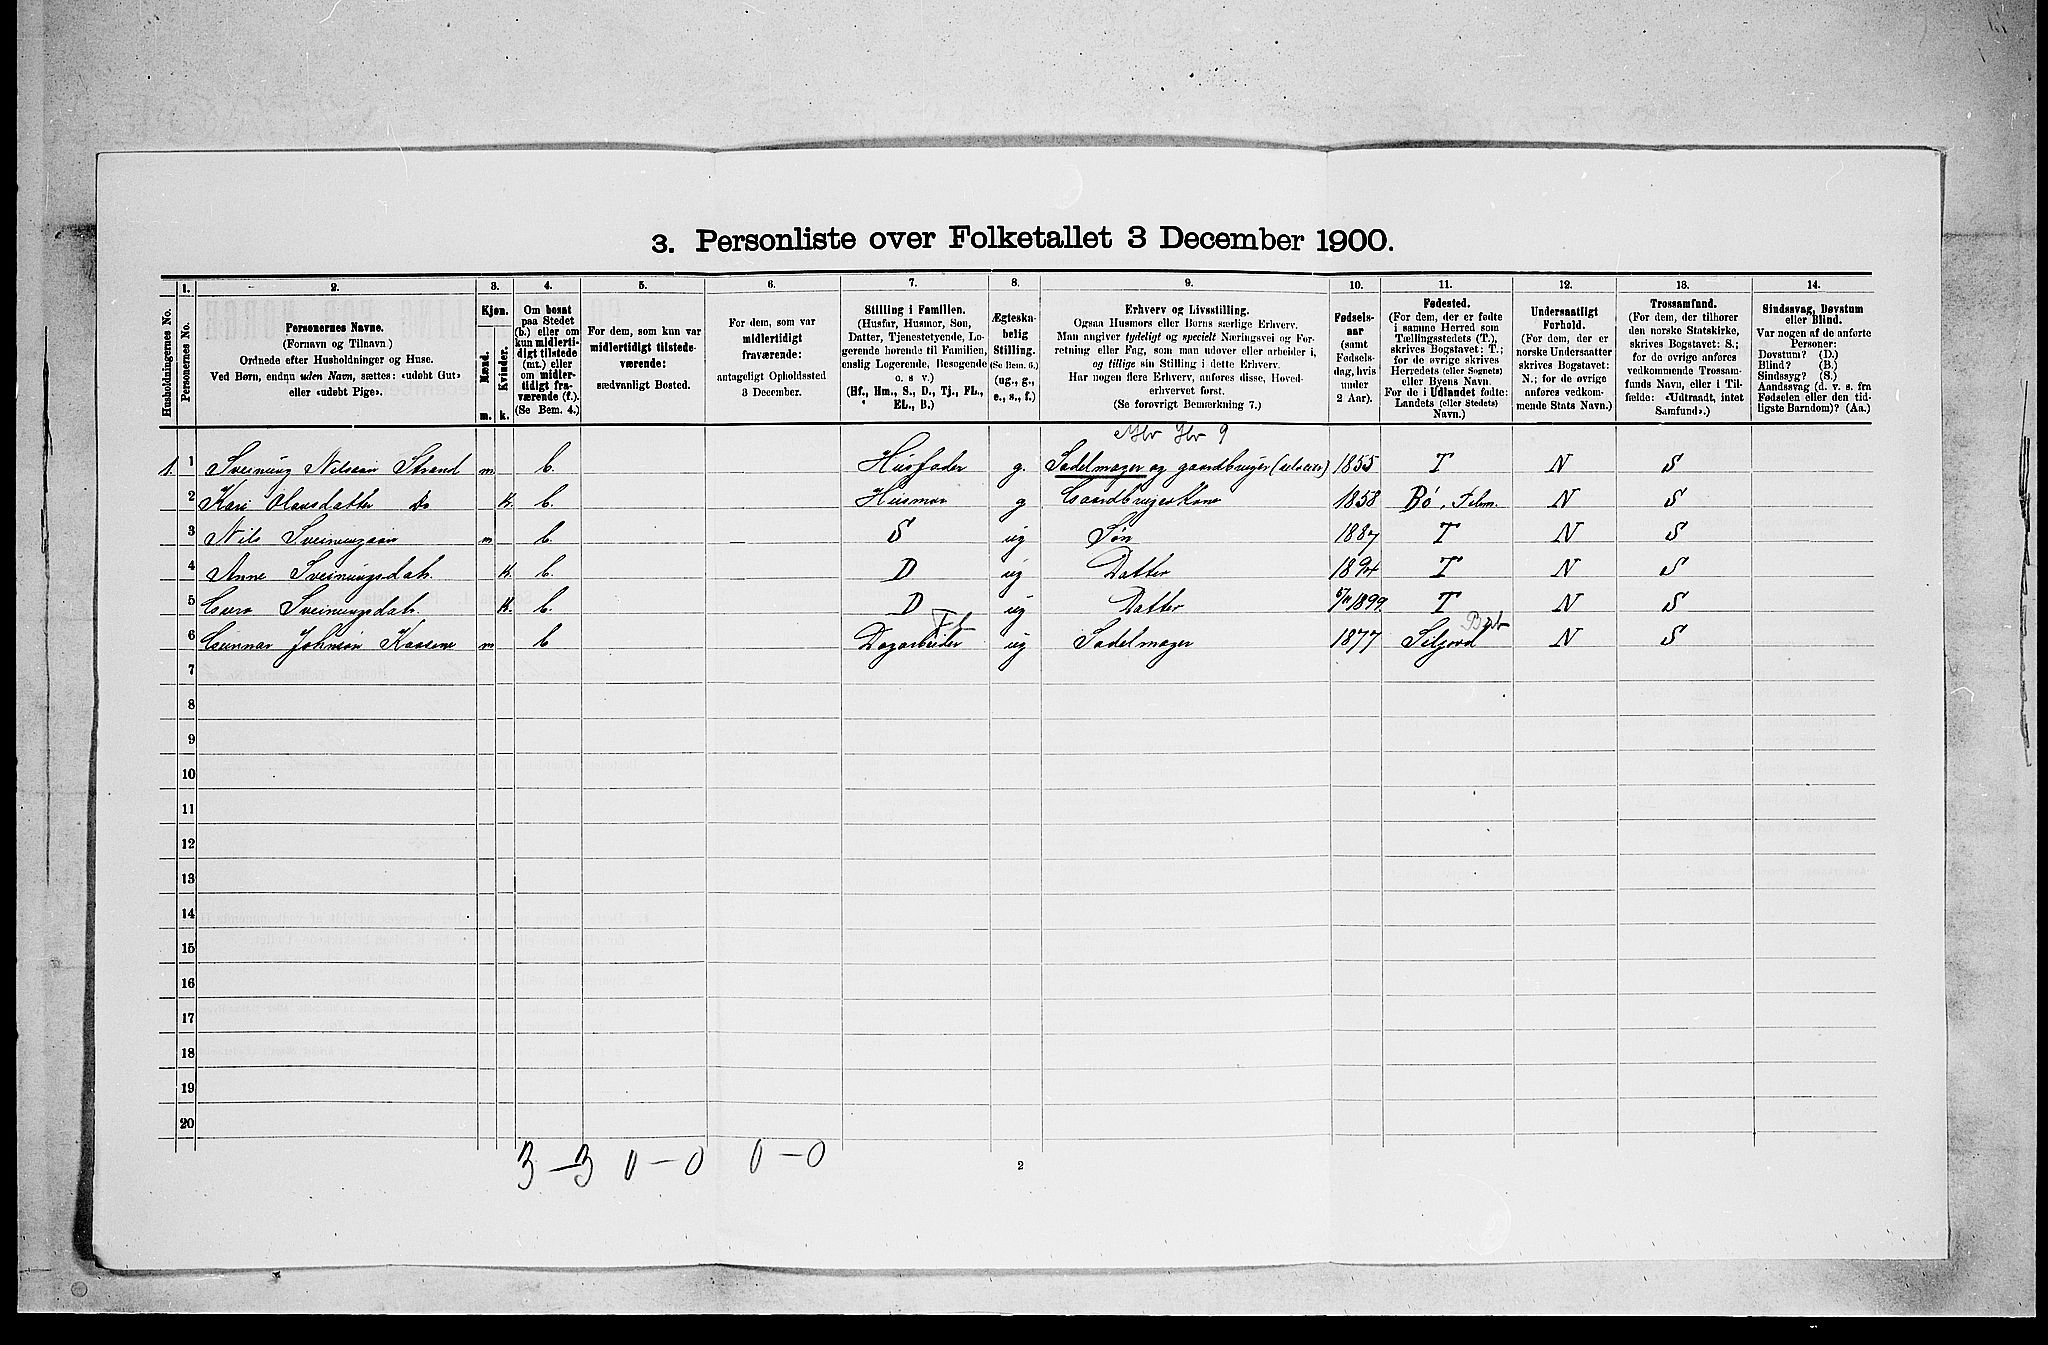 3. Personliste over Folketallet 3 December 1900.
1. 2. 3. 4. 5. 6. 7. 8. 9. 10. 11. 12. 13. 14.
Husholdningernes No.
Personernes No.
Personernes Navne.
(Fornavn og Tilnavn.)
Ordnede efter Husholdninger og Huse.
Ved Børn, endnu uden Navn, sættes: «udøbt Gut»
eller «udøbt Pige».
Kjøn.
Mænd.
Kvinder.
m. k.
Om bosat
paa Stedet
(b.) eller om
kun midlerti-
digt tilstede
(mt.) eller
om midler-
tidigt fra-
værende (f.).
(Se Bem. 4.)
For dem, som kun var
midlertidigt tilstede-
værende:
sædvanligt Bosted.
For dem, som var
midlertidigt
fraværende:
antageligt Opholdssted
3 December.
Stilling i Familien.
(Husfar, Husmor, Søn,
Datter, Tjenestetyende, Lo-
gerende hørende til Familien,
enslig Logerende, Besøgende
o. s v.)
(Hf., Hm., S., D., Tj., FL.,
EL., B.)
Ægteska-
belig
Stilling.
(Se Bem. 6.)
(ug., g.,
e., s., f.)
Erhverv og Livsstilling.
Ogsaa Husmors eller Børns særlige Erhverv.
Man angiver tydeligt og specielt Næringsvei og For-
retning eller Fag, som man udøver eller arbeider i,
og tillige sin Stilling i dette Erhverv.
Har nogen flere Erhverv, anføres disse, Hoved-
erhvervet først.
(Se forøvrigt Bemærkning 7.)
Fødsels-
aar
(samt
Fødsels-
dag, hvis
under
2 Aar).
Fødested.
(For dem, der er fødte
i samme Herred som
Tællingsstedets (T.),
skrives Bogstavet: T.;
for de øvrige skrives
Herredets (eller Sognets)
eller Byens Navn.
For de i Udlandet fødte:
Landets (eller Stedets)
Navn.)
Undersaatligt
Forhold.
(For dem, der er
norske Undersaatter
skrives Bogstavet:
N.; for de øvrige
anføres vedkom-
mende Stats Navn.)
Trossamfund.
(For dem, der tilhører
den norske Statskirke,
skrives Bogstavet: S.;
for de øvrige anføres
vedkommende Trossam-
funds Navn, eller i Til-
fælde: «Udtraadt, intet
Samfund».)
Sindssvag, Døvstum
eller Blind.
Var nogen de anførte
Personer:
Døvstum? (D.)
Blind? (B.)
Sindssyg? (S.)
Aandssvag (d. v. s. fra
Fødselen eller den tid-
ligste Barndom)? (Aa.)
1. 1 Sveinung Nilssøn Strand m b. Husfader g. Sadelmager og gaardbruger (selveier) 1855 T N S
2 Kari Olavsdatter Do k. b. Husmor g Gaardbrugerkone 1858 Bø, Telm. N S
3 Nils Sveinungssøn m b. S ug Søn 1887 T N S
4 Anne Sveinungsdatr. k. b. D ug Datter 1894 T N S
5 Guro Sveinungsdatr. k. b. D ug Datter 1899. T N S
6 Gunnar Johnsøn Kaasene m b Dagarbeider ug Sadelmager 1877 Siljord N S
7
8
9
10
11
12
13
14
15
16
17
18
19
20
3 — 3 0 — 0 0 — 0
2